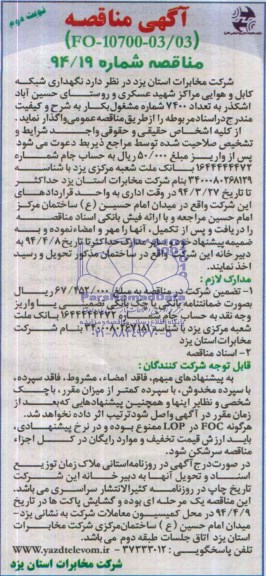 نوبت دوم
آگهی مناقصه
(FO-10700-03/03)
مناقصه شماره ۹۴/۱۹
شرکت مخابرات استان یزد در نظر دارد نگهداری شبکه
کابل و هوایی مراکز شهید عسکری و روستای حسین آباد
اشکذر به تعداد ۷۴۰۰ شماره مشغول بکار به شرح و کیفیت
مندرج در اسناد مربوطه را از طریق مناقصه عمومی واگذار نماید.
از کلیه اشخاص حقیقی و حقوقی واجد شرایط و
تشخیص صلاحیت شده توسط مراجع ذیربط دعوت می شود
پس از واریز مبلغ ۵۰/۰۰۰ ریال به حساب جام شماره
۱۶۴۴۴۴۴۴۷۲ بانک ملت شعبه مرکزی یزد با شناسه
بنام شرکت مخابرات استان یزد حداکثر
تا تاریخ ۹۴/۳/۲۷ در وقت اداری به واحد قراردادهای
این شرکت واقع در میدان امام حسین (ع) ساختمان مرکز
امام حسین مراجعه و با ارائه فیش بانکی اسناد مناقصه
را دریافت و پس از تکمیل، آنها را مهر و امضاء نموده و به
ضمیمه پیشنهاد حداکثر تا تاریخ ۹۴/۴/۸ به
دبیرخانه این شرکت واقع در ساختمان مذکور تحویل و رسید
اخذ نمایند.
مدارک لازم:
۱- تضمین شرکت در مناقصه به مبلغ ۶۷/۴۵۲/۰۰۰ ریال
بصورت ضمانتنامه بانکی یا چک بانکی تضمینی یا واریز
وجه نقد به حساب جام شماره ۱۶۴۴۴۴۴۴۷۲ بانک ملت
شعبه مرکزی یزد با شناسه بنام شرکت
مخابرات استان یزد
۲- اسناد مناقصه
قابل توجه شرکت کنندگان:
به پیشنهادهای مبهم، فاقد امضاء، مشروط، فاقد سپرده،
با سپرده مخدوش، با سپرده کمتر از میزان مقرر، با چک
شخصی و نظایر اینها و همچنین پیشنهادهایی که بعد از
زمان مقرر در آگهی واصل شود ترتیب اثر داده نخواهد شد.
هرگونه FOC در LOP ممنوع بوده و در نرخ پیشنهادی،
باید ارزش قیمت تخفیف و موارد رایگان در کل اجزاء
مناقصه سرشکن شود.
در صورت درج آگهی در روزنامه استانی ملاک زمان توزیع
اسناد و تحویل آنها به دبیرخانه این شرکت
تاریخ چاپ در روزنامه کثیرالانتشار سراسری می باشد.
این مناقصه یک مرحله ای بوده و گشایش پاکت ها در تاریخ
۹۴/۴/۹ در محل کمیسیون معاملات شرکت به نشانی یزد-
میدان امام حسین (ع) ساختمان مرکزی شرکت مخابرات
استان یزد اتاق جلسات طبقه دوم می باشد.
تلفن پاسخگویی: ۳۷۲۳۳۰۱۲ - www.yazdtelecom.ir
شرکت مخابرات استان یزد